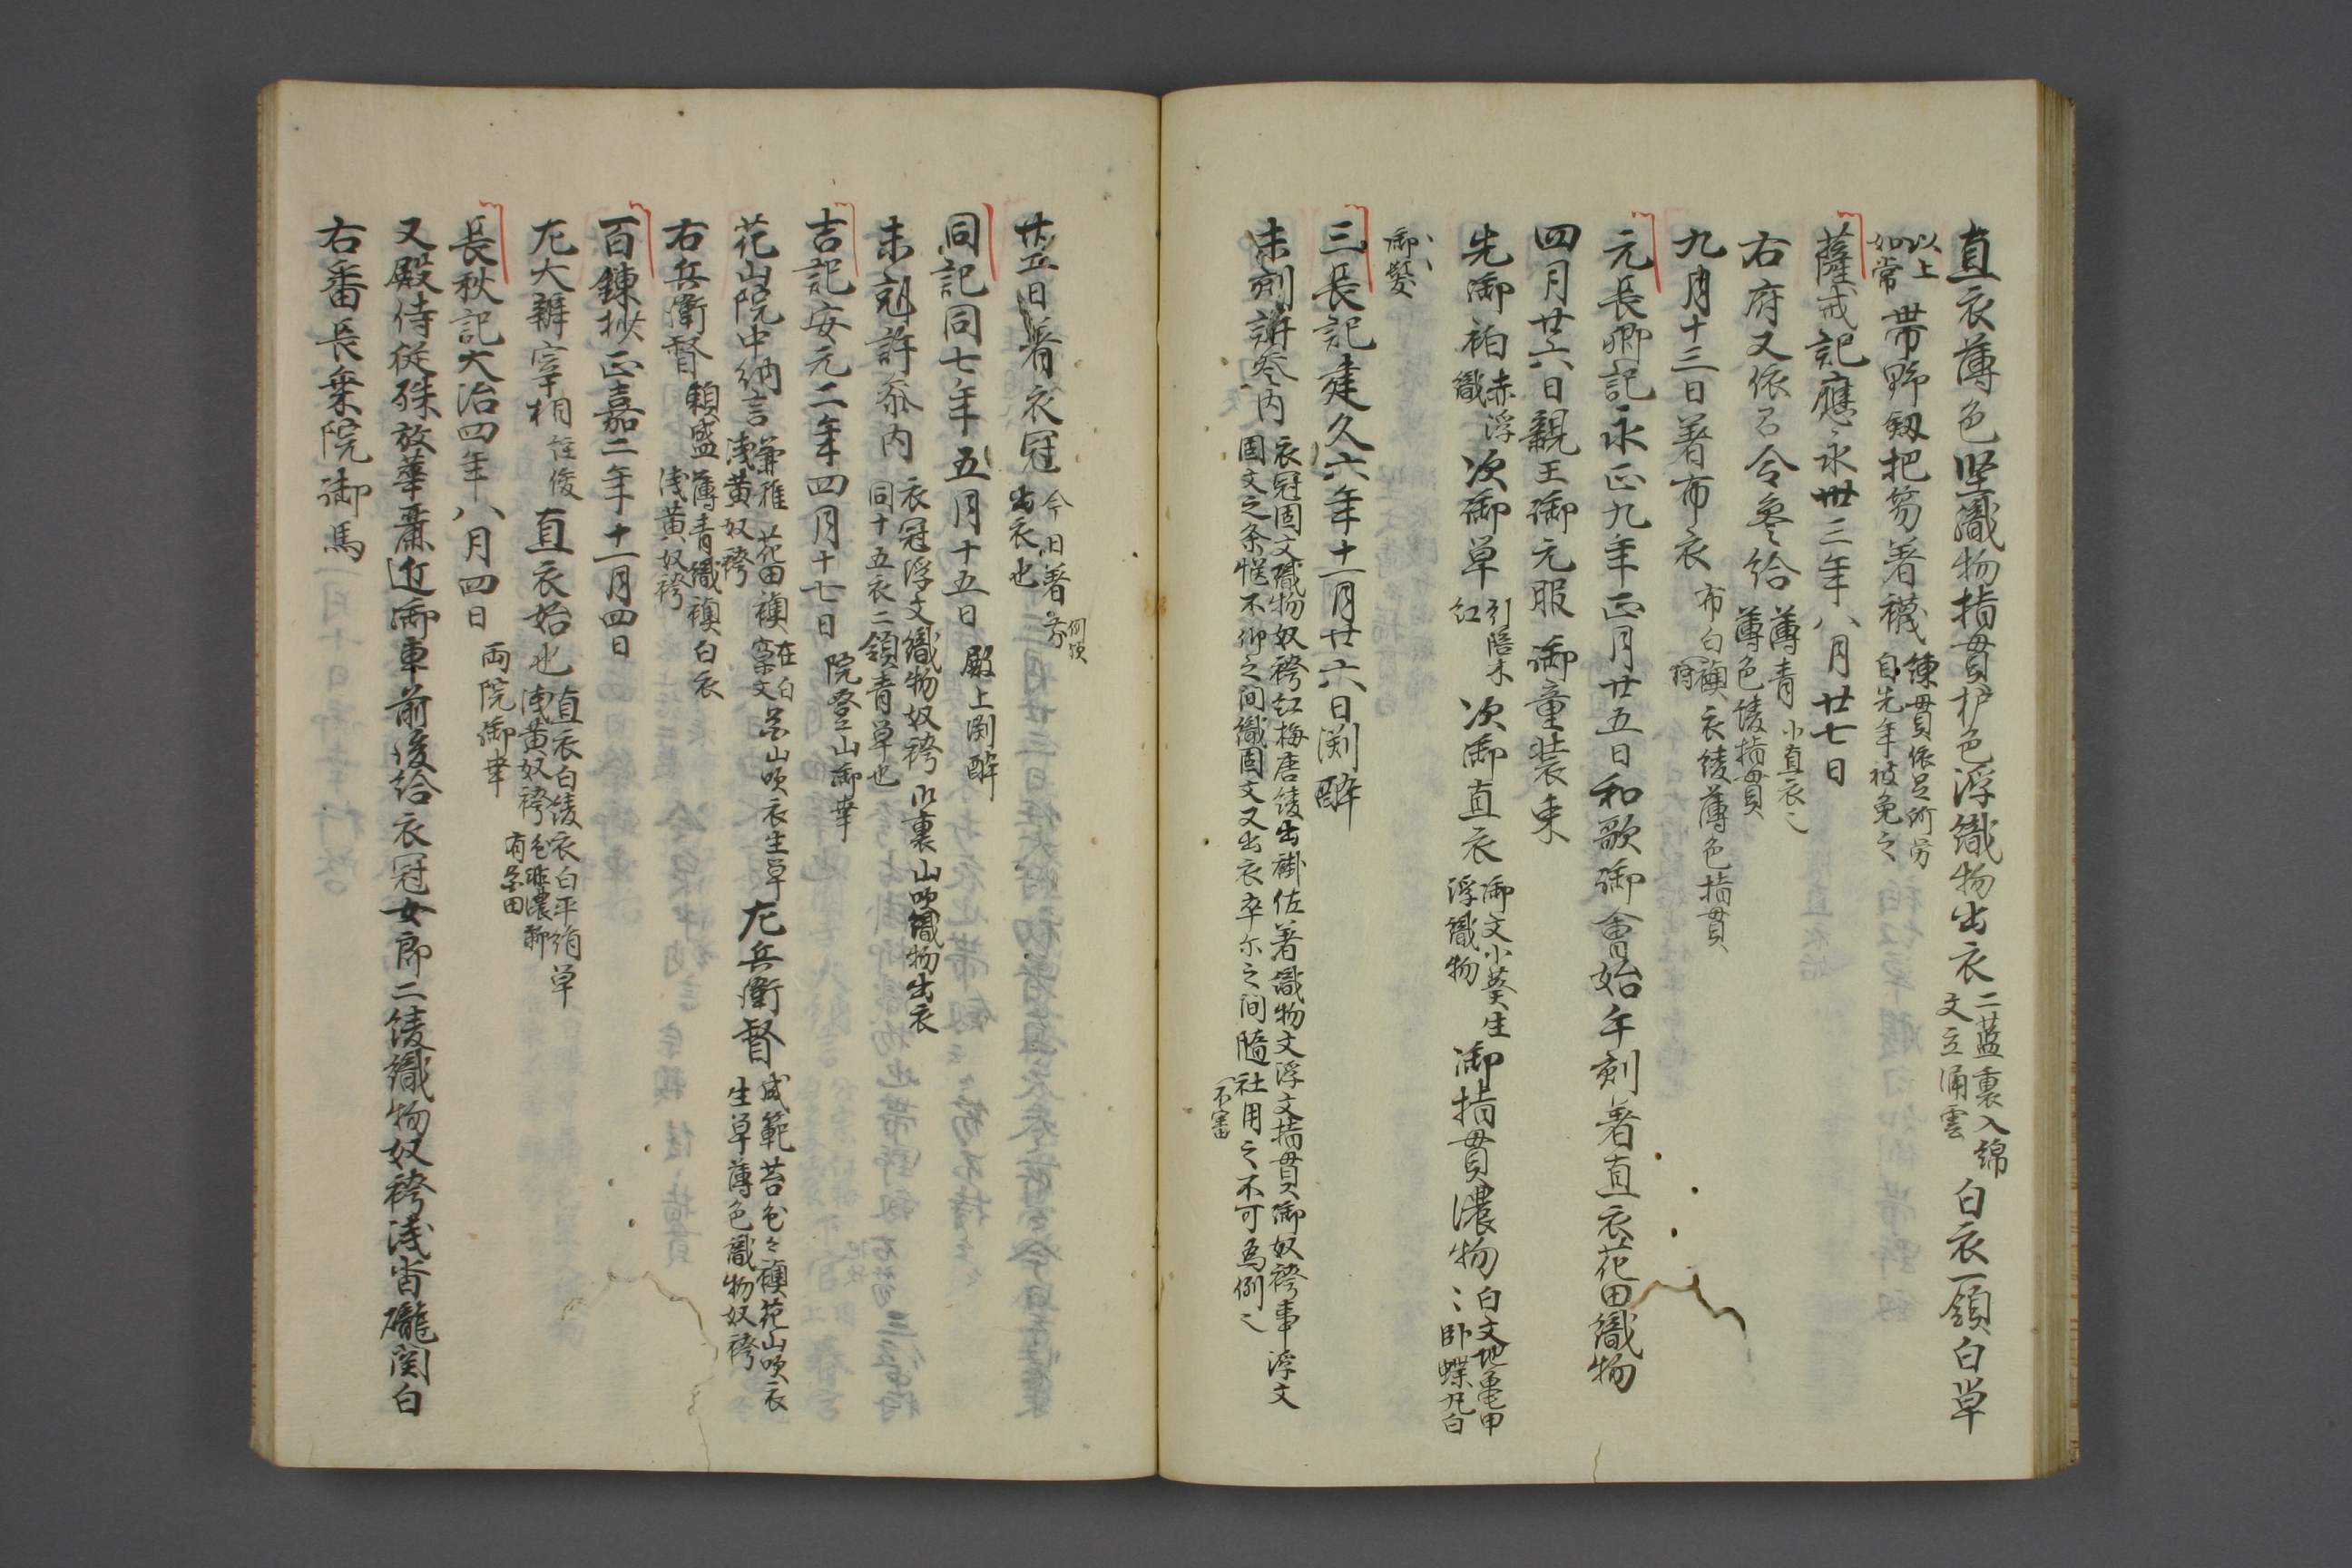 直衣薄色堅織物指貫栌色浮織物出衣二藍裏入綿文立涌雲白衣一領白草
以上如常帯野釼把笏著襪練貫依足所労自先年被免之
薩戒記應永卅三年八月廿七日
右府又依召令参給薄青小直衣之薄色綾指貫
九月十三日著布衣布白襖衣綾薄色指貫
元長卿記永正九年正月廿五日和歌御會始午剋著直衣花田織物
四月廿六日親王御元服御童装束
先御袙赤浮織次御草引陪木紅次御直衣御文小葵生浮織物御指貫濃物白文地亀甲〻臥蝶丸白
御鬘
三長記建久六年十一月廿六日渕酔
未剋許参内衣冠固文織物奴袴紅梅唐綾出褂佐著織物文浮文指貫御奴袴事浮文
固文之条慥不仰之间織固文又出衣卒尓之间随社用之不可為例之
不審
廿五日著衣冠今日著出衣也
同記同七年五月十五日殿上渕酔
未剋許参内衣冠浮文織物奴袴山裏山吹織物出衣
同十五衣二領青草也
吉記安元二年四月十七日院登山御幸
花山院中納言兼雅花田襖在白窠文浅黄奴袴山吹衣生草左兵衛督成範苔色々襖花山吹衣生草薄色織物奴袴
右兵衛督頼盛薄青織襖白衣浅黄奴袴
百錬抄正嘉二年十一月四日
左大辨宰相任俊直衣始也直衣白綾衣白平絹草浅黄奴袴色非濃聊有花田
長秋記大治四年八月四日両院御幸
又殿侍従殊放華粛近御車前後給衣冠女郎二綾織物奴袴浅沓瀧関白
右番長乗院御馬